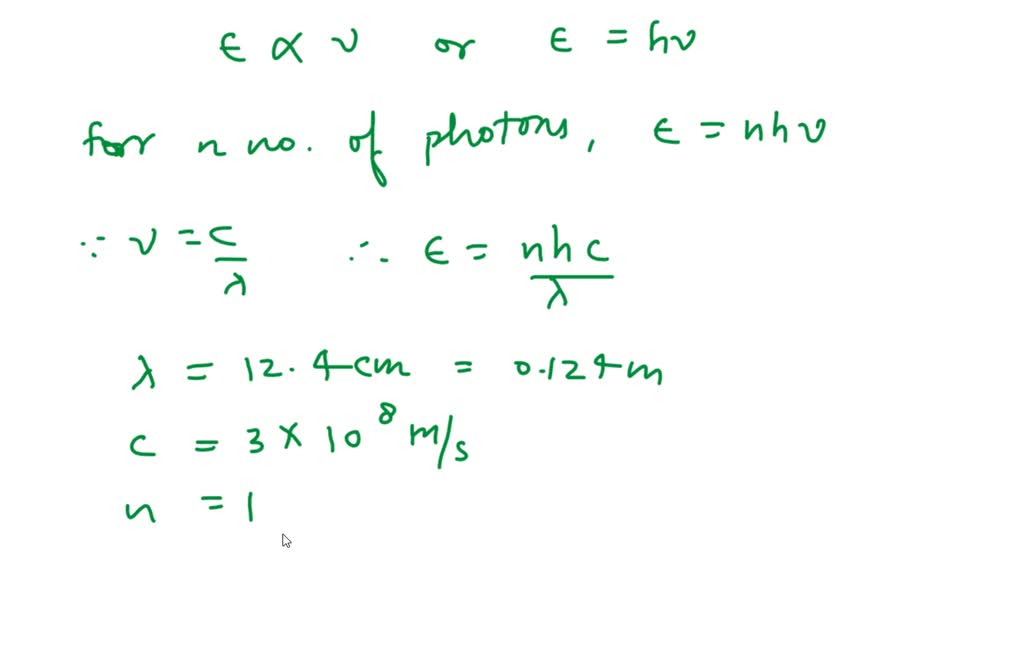 ϵ ∝ ν or ϵ = hν
for n no. of photons, ϵ = nhν
∵ ν = c/λ ∴ ϵ = nhc/λ
λ = 12.4 cm = 0.124 m
c = 3 × 10⁸ m/s
n = 1